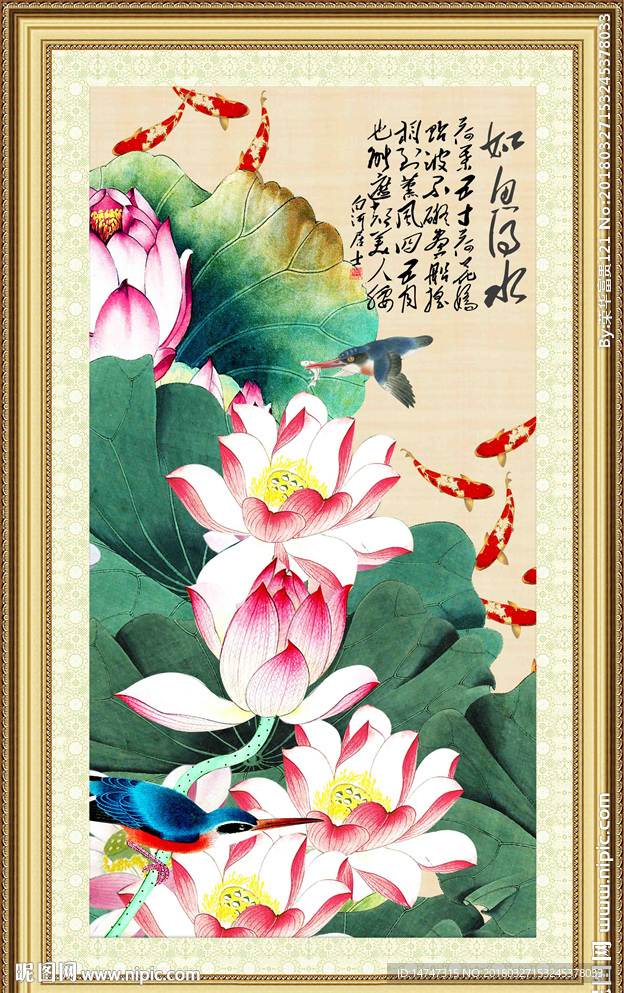 如鱼得水
荷葉五寸荷花嬌
貼波不礙畫船摇
相到薰風四五月
也能遮却美人腰
白河居士
By:荣华富贵121 No:20180327153245378033
昵图网 www.nipic.com
昵图网 www.nipic.com
ID:14747315 NO:20180327153245378033